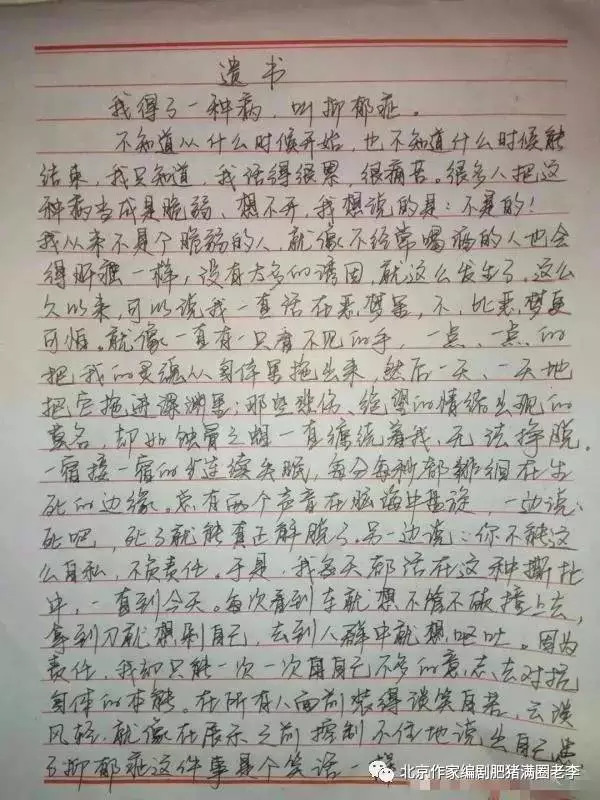 遗书
我得了一种病，叫抑郁症。
不知道从什么时候开始，也不知道什么时候能
结束，我只知道，我活得很累，很痛苦。很多人把这
种病当成是脆弱、想不开，我想说的是：不是的！
我从来不是个脆弱的人，就像不经常喝酒的人也会
得肝癌一样，没有太多的诱因，就这么发生了，这么
久以来，可以说我一直活在恶梦里，不，比恶梦更
可怕。就像一直有一只看不见的手，一点、一点的
把我的灵魂从身体里拖出来，然后一天、一天地
把它拖进深渊里；那些悲伤、绝望的情绪出现的
莫名，却如蚀骨之蛆一直缠绕着我，无法挣脱。
一宿接一宿的连续失眠，每分每秒都徘徊在生
死的边缘。总有两个声音在脑海中盘旋，一边说：
死吧，死了就能真正解脱了。另一边说：你不能这
么自私，不负责任。于是，我每天都活在这种撕扯
中，一直到今天。每次看到车就想不管不顾撞上去，
拿到刀就想剁自己，去到人群中就想呕吐。因为
责任，我却只能一次一次用自己不多的意志去对抗
身体的本能。在所有人面前装得谈笑自若、云淡
风轻，就像在展示之前控制不住地说出自己得
了抑郁症这件事是个笑话一样
北京作家编剧肥猪满圈老李